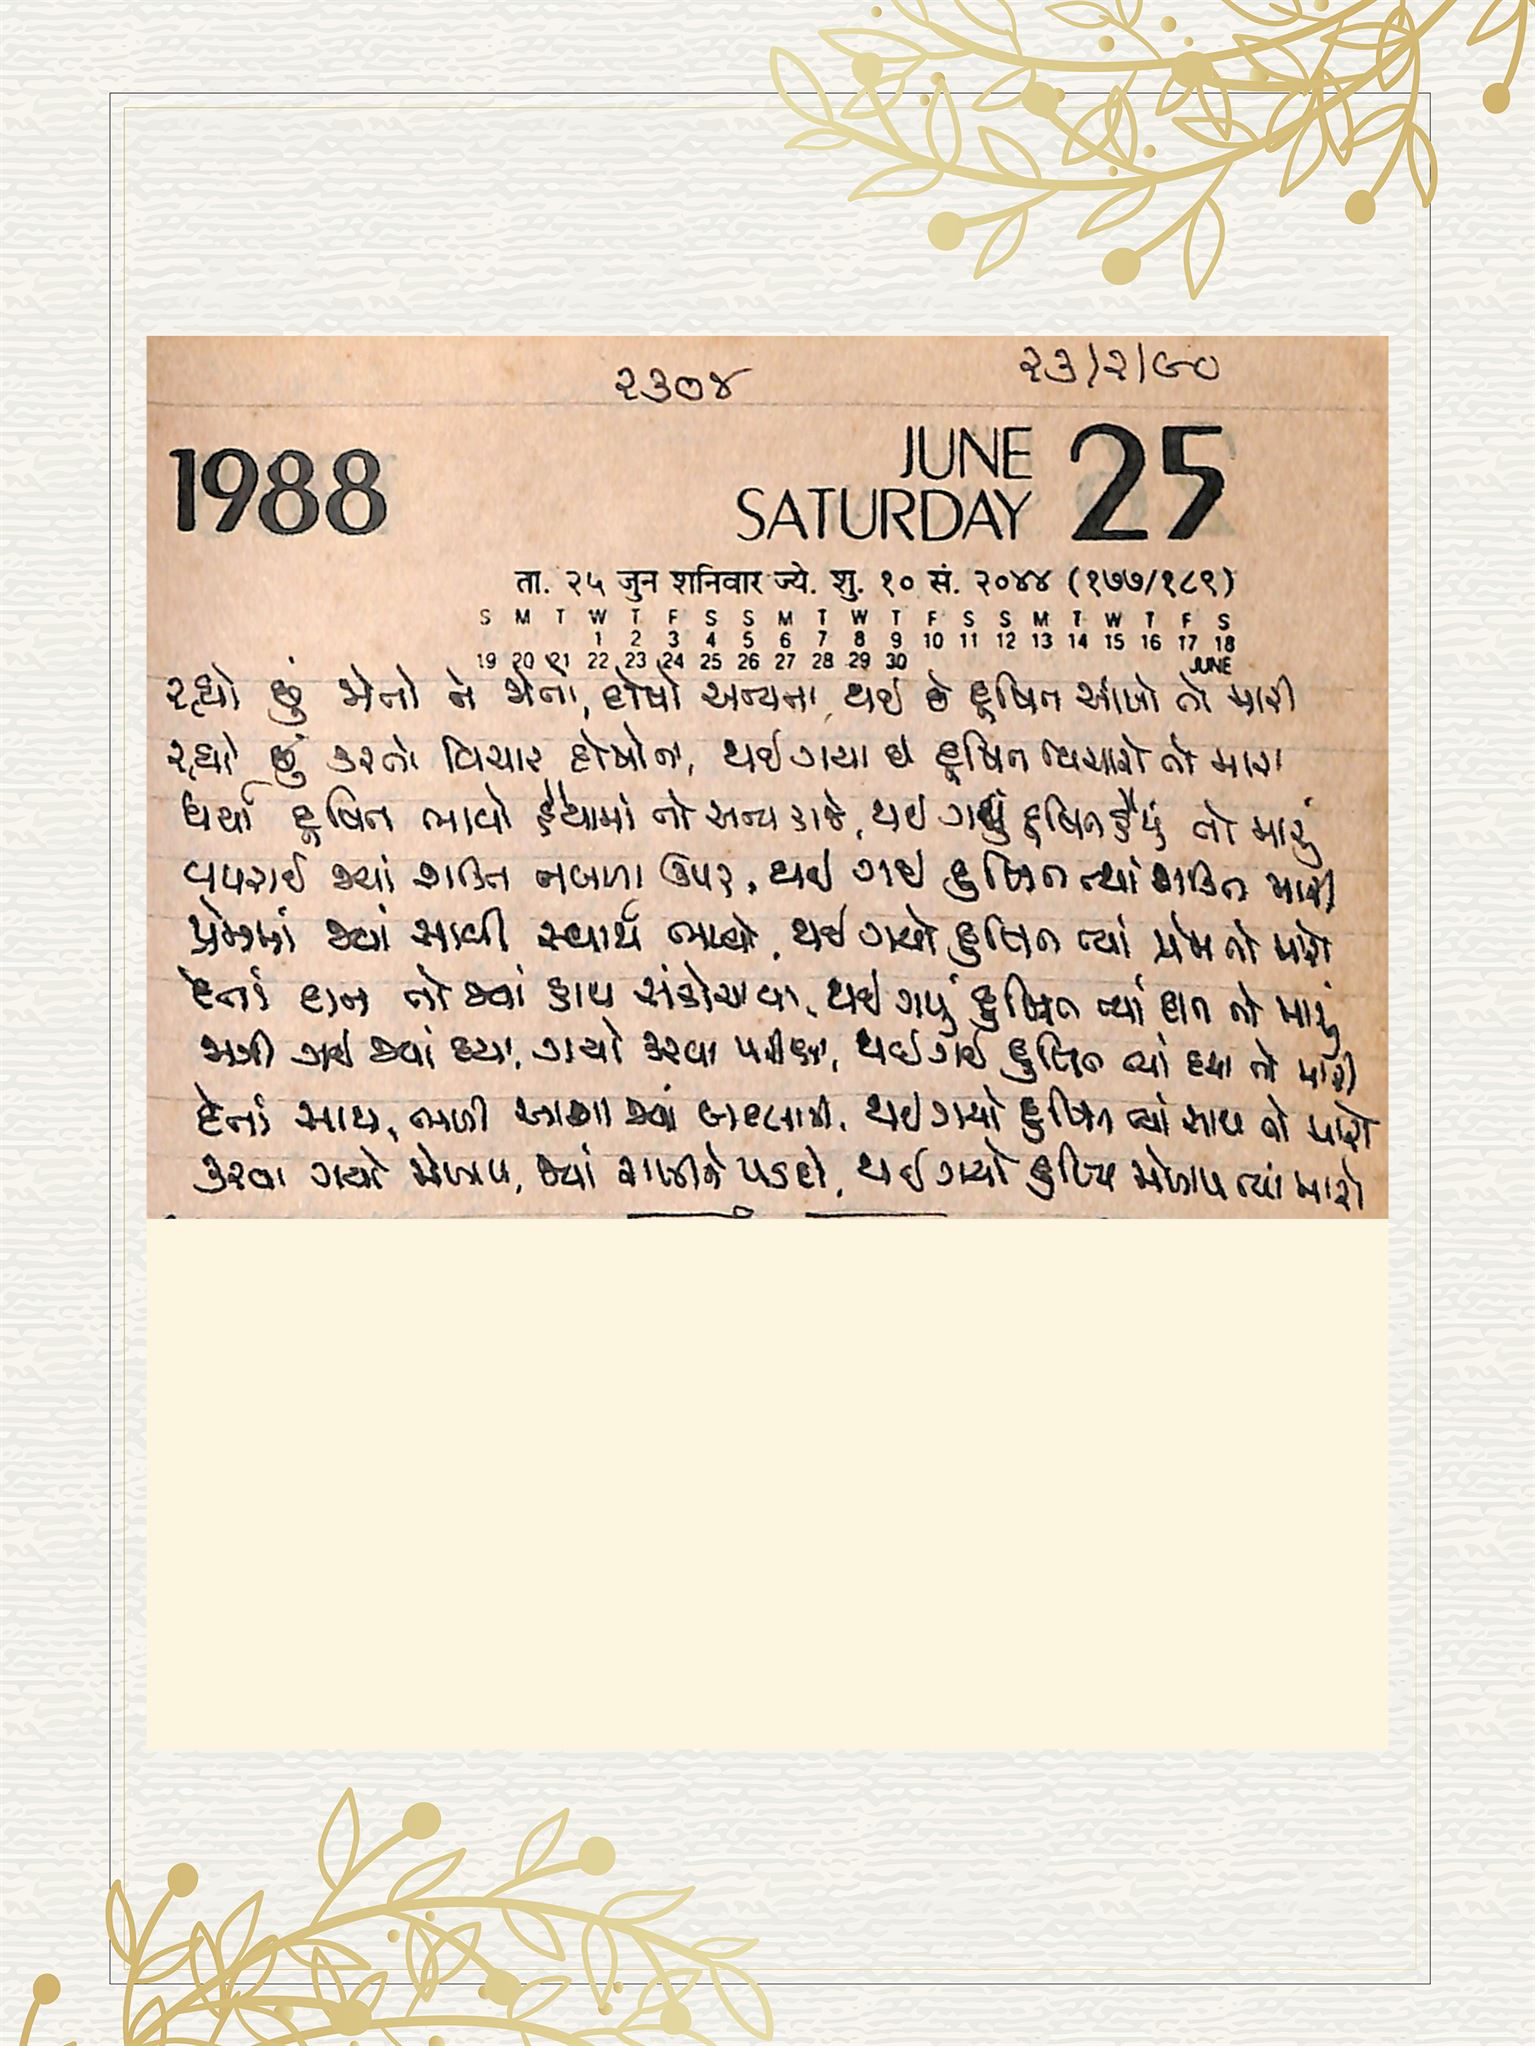 ૨૩૦૪
૨૩/૨/૯૦
1988
JUNE
SATURDAY 25
ता. २५ जुन शनिवार ज्ये. शु. १० सं. २०४४ (१७७/१८९)
S M T W T F S S M T W T F S S M T W T F S
1 2 3 4 5 6 7 8 9 10 11 12 13 14 15 16 17 18
19 20 21 22 23 24 25 26 27 28 29 30 JUNE
રહ્યો છું જોતો ને જોતો, દોષો અન્યના, થઈ છે દૂષિત આંખો તો મારી
રહ્યો છું કરતો વિચાર દોષોના, થઈ ગયા છે દૂષિત વિચારો તો મારા
ધર્યા દૂષિત ભાવો હૈયામાં તો અન્ય કાજે, થઈ ગયું દૂષિત હૈયું તો મારું
વપરાઈ જ્યાં શક્તિ નબળા ઉપર, થઈ ગઈ દુષિત ત્યાં શક્તિ મારી
પ્રેમમાં જ્યાં આવી સ્વાર્થ ભળ્યો, થઈ ગયો દુષિત ત્યાં પ્રેમ તો મારો
દેતાં દાન તો જ્યાં હાથ સંકોચાયા, થઈ ગયું દુષિત ત્યાં દાન તો મારું
મળી ગઈ જ્યાં દયા, ગયો કરવા પરીક્ષા, થઈ ગઈ દુષિત ત્યાં દયા તો મારી
દેતાં સાથ, ભળી આશા જ્યાં બદલાની, થઈ ગયો દુષિત ત્યાં સાથ તો મારો
કરવા ગયો મેળાપ, જ્યાં રાખીને પડદો, થઈ ગયો દુષિત મેળાપ ત્યાં મારો